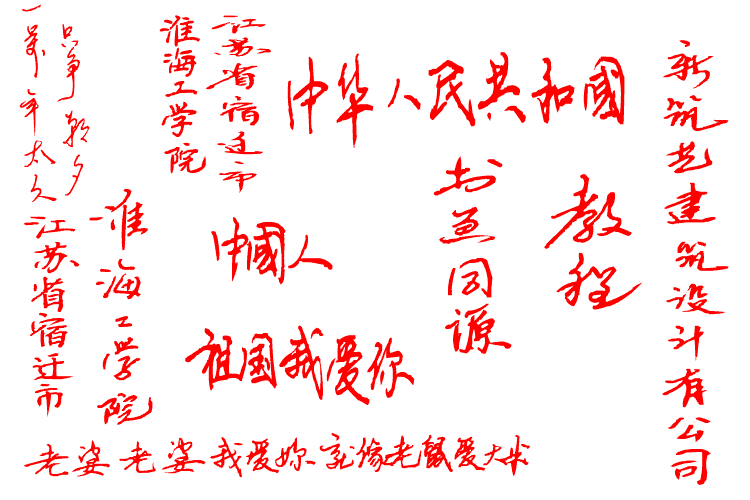 新筑艺建筑设计有公司
中华人民共和國
教程
书画同源
江苏省宿迁市
淮海工学院
只争朝夕
一萬年太久
中國人
祖国我爱你
淮海工学院
江苏省宿迁市
老婆老婆我爱妳就像老鼠爱大米